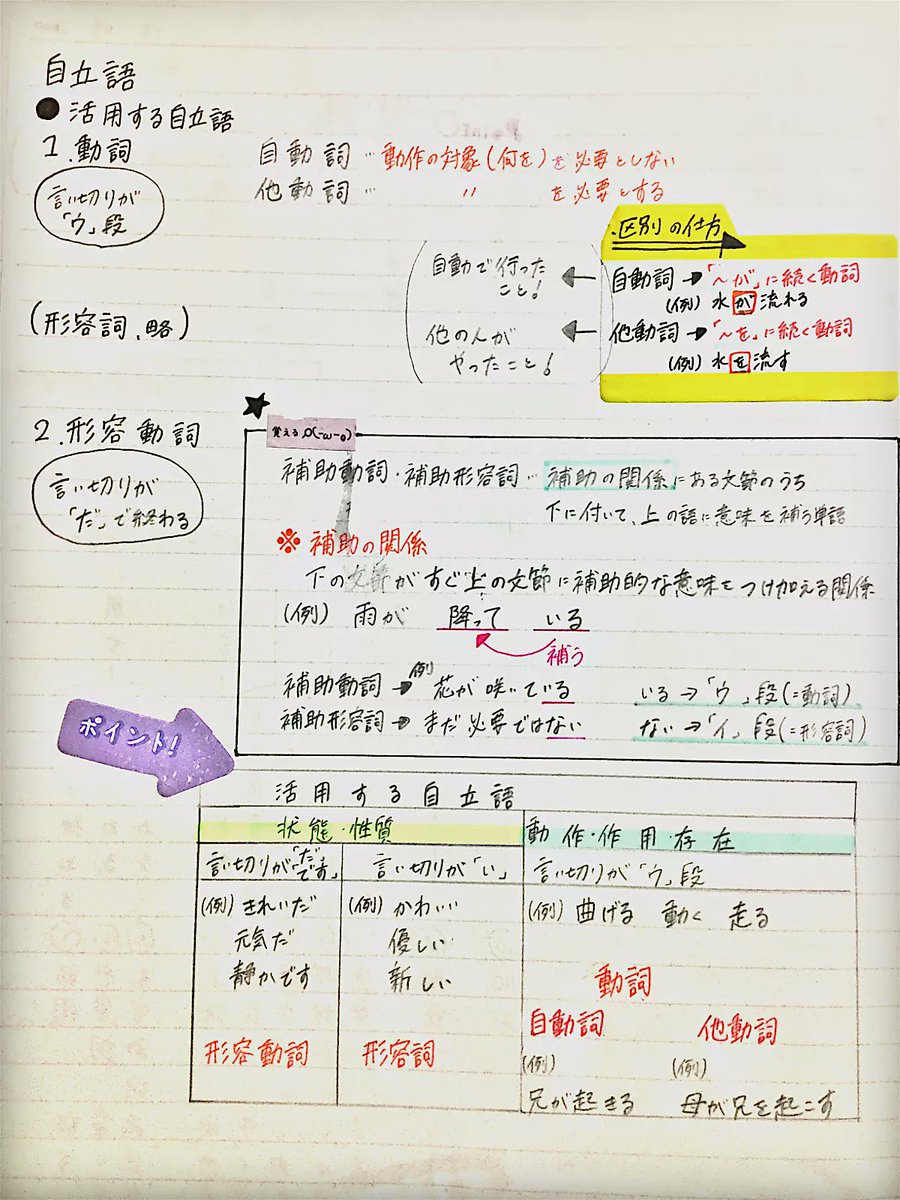 自立語
● 活用する自立語
1.動詞
言い切りが
「ウ」段
自動詈…動作の対象(何を)を必要としない
他動詞… 〃 を必要とする
区別の仕方
自動詞→「～が」に続く動詞
(例) 水が流れる
他動詞→「～を」に続く動詞
(例) 水を流す
自動で行った
こと!
他の人が
やったこと!
(形容詞、略)
2.形容動詞
言い切りが
「だ」で終わる
覚える
補助動詞・補助形容詞…補助の関係にある文節のうち
下に付いて、上の語に意味を補う単語
※ 補助の関係
下の文節がすぐ上の文節に補助的な意味をつけ加える関係
(例) 雨が 降って いる
補う
補助動詞→例 花が咲いている いる→「ウ」段(=動詞)
補助形容詞→まだ必要ではない ない→「イ」段(=形容詞)
ポイント!
活用する自立語
状態・性質
動作・作用・存在
言い切りが「だ・です」
(例) きれいだ
元気だ
静かです
形容動詞
言い切りが「い」
(例) かわいい
優しい
新しい
形容詞
言い切りが「ウ」段
(例) 曲げる 動く 走る
動詞
自動詞 他動詞
(例) (例)
兄が起きる 母が兄を起こす